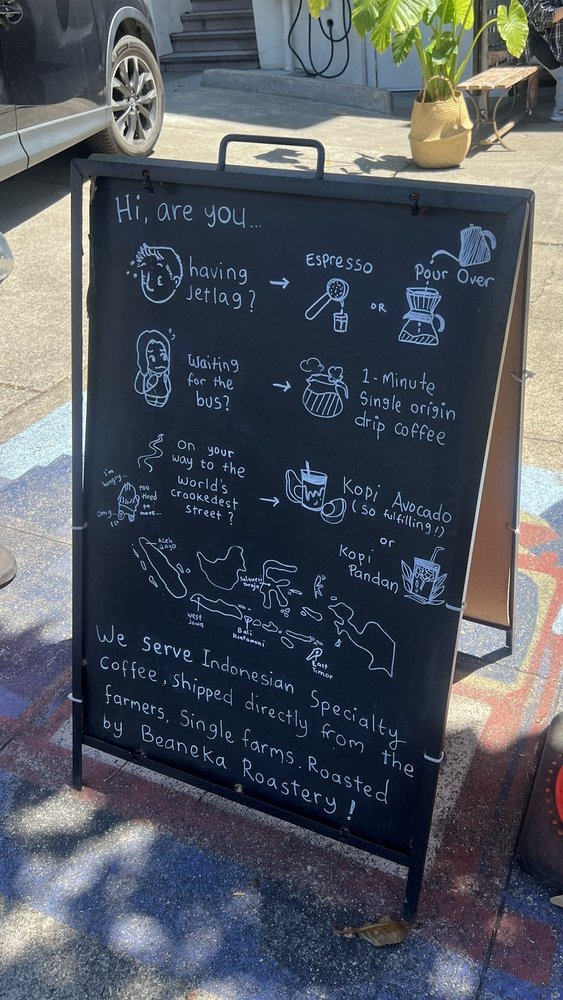 Hi, are you...
having
Jetlag?
Espresso
OR
Pour Over
Waiting
for the
bus?
1-Minute
Single origin
drip coffee
on your
way to the
world's
crookedest
street?
i'm
hungry...
too
tired
to
move...
omg...
Kopi Avocado
(so fulfilling!)
or
Kopi
Pandan
Aceh
Gayo
Sulawesi
Toraja
West
Jawa
Bali
Kintamani
East
Timor
We serve Indonesian Specialty
Coffee, shipped directly from the
farmers, Single farms. Roasted
by Beaneka Roastery!